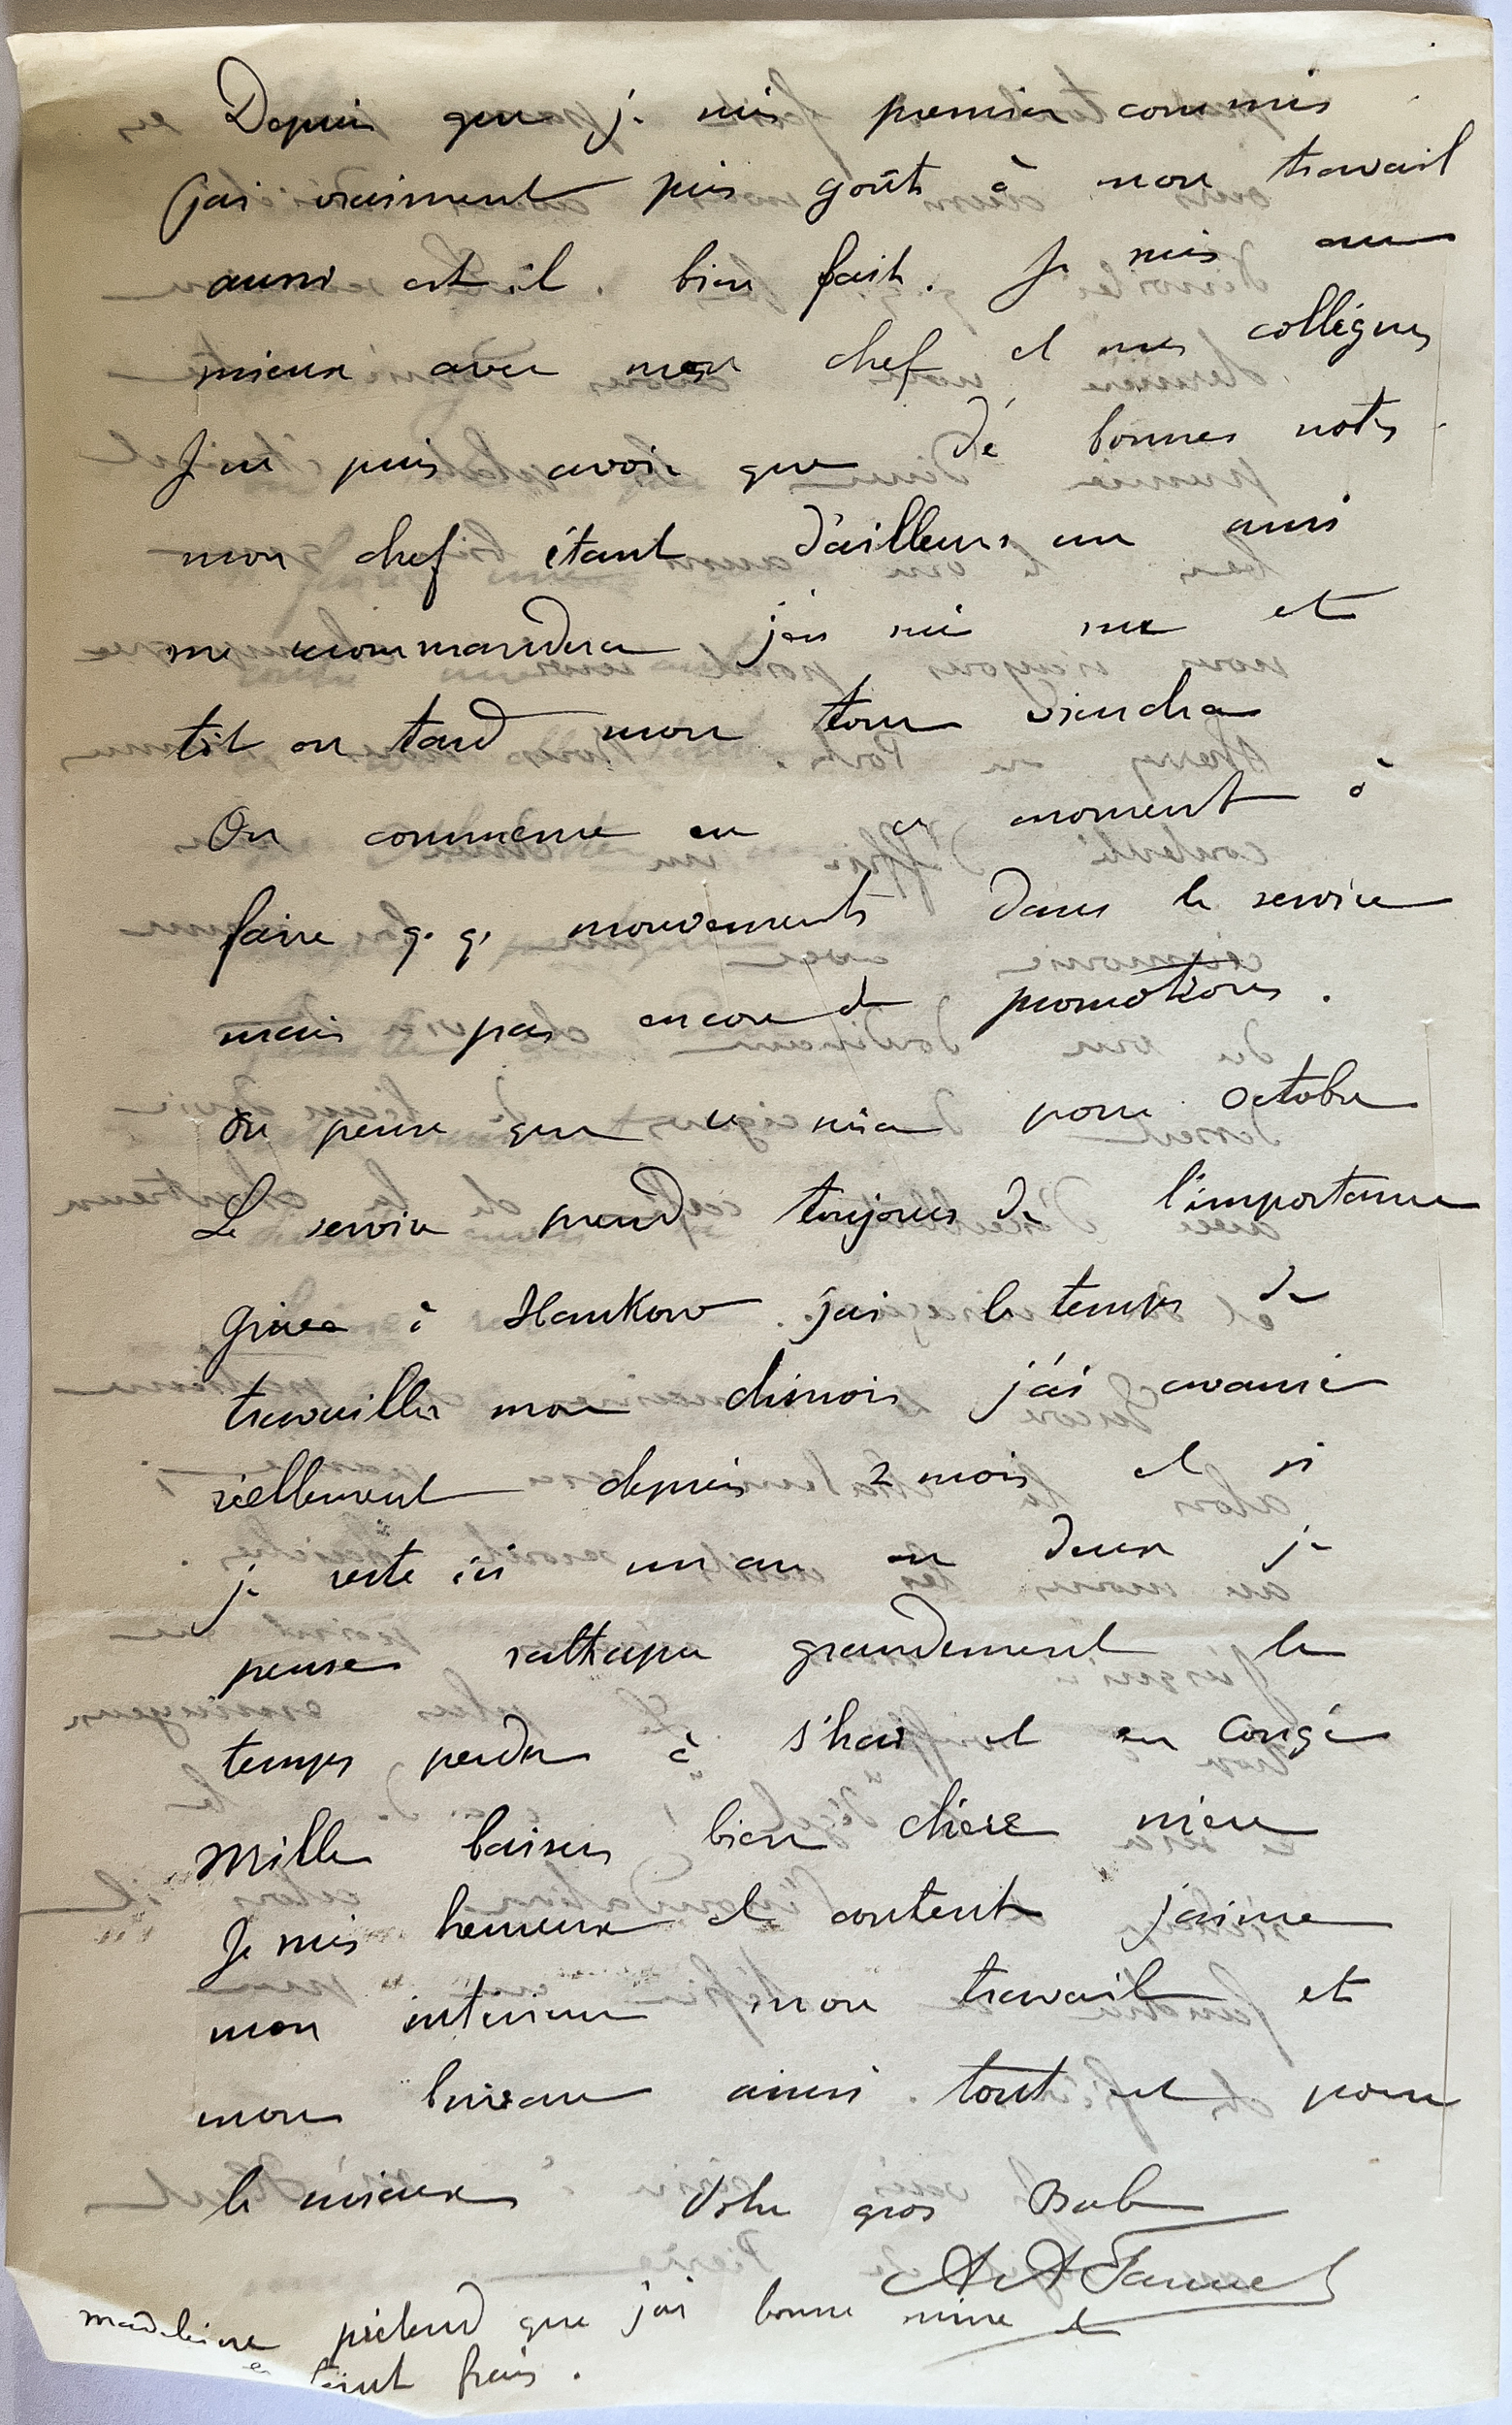 Depuis que je suis premier commis
j'ai vraiment pris goût à mon travail
aussi est il bien fait. Je suis au
mieux avec mon chef et mes collègues
Je ne puis avoir que de bonnes notes.
mon chef étant d'ailleurs un ami
me recommandera j'en suis sur et
tôt ou tard mon tour viendra
On commence en ce moment à
faire q.q. mouvements dans le service
mais pas encore de promotions.
On pense que ce sera pour Octobre
Le service prend toujours de l'importance
Grace à Hankow j'ai le temps de
travailler mon chinois j'ai avancé
réellement depuis 2 mois et si
je reste ici un an ou deux je
pense rattraper grandement le
temps perdu à S'hai et en Congé
Mille baisers bien chère mère
Je suis heureux et content j'aime
mon interieur mon travail et
mon bureau ainsi tout est pour
le mieux Votre gros Bob
Madeleine prétend que j'ai bonne mine et
teint frais.